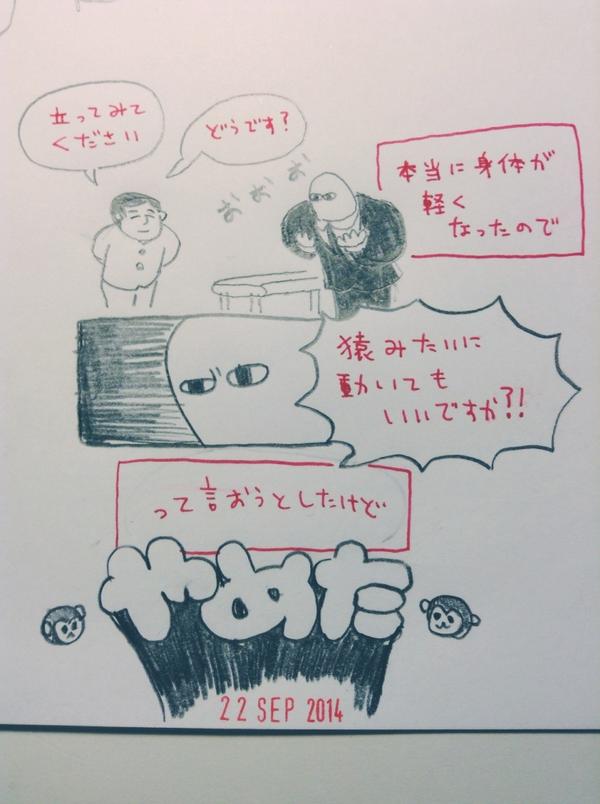 立ってみて
ください
どうです?
おぉぉ
本当に身体が
軽く
なったので
猿みたいに
動いても
いいですか?!
って言おうとしたけど
やめた
22 SEP 2014